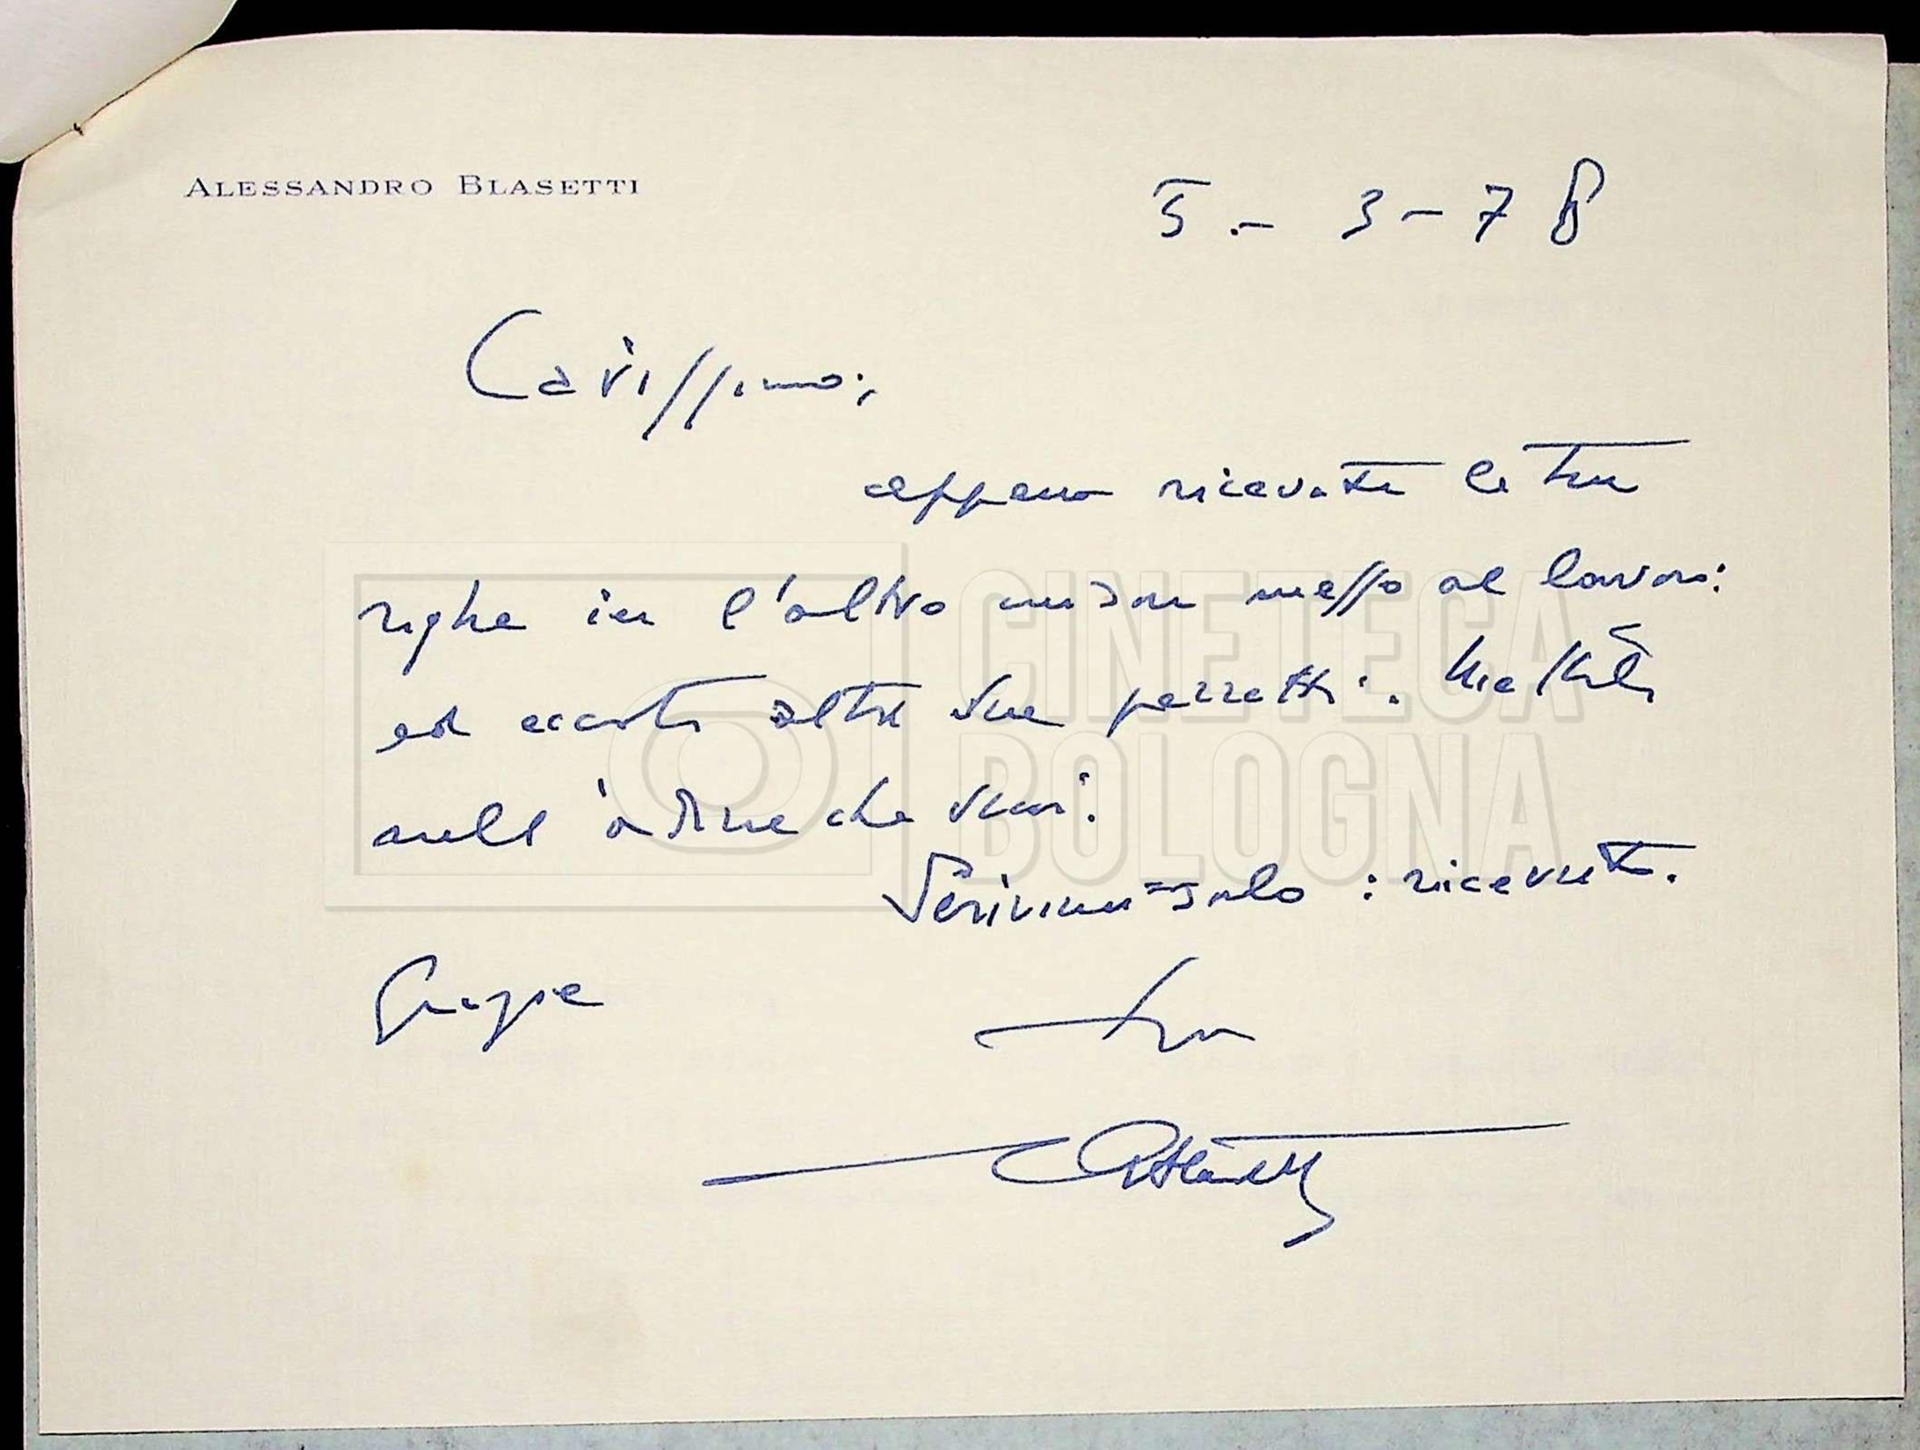 ALESSANDRO BLASETTI
5.-3-78
Carissimo,
appena ricevute le tue
righe ier l'altro mi son messo al lavoro:
ed eccoti altri due pezzetti. Mettili
nell'ordine che vuoi.
Scrivimi solo: ricevuto.
Grazie
tuo
ABlasetti
CINETECA
BOLOGNA